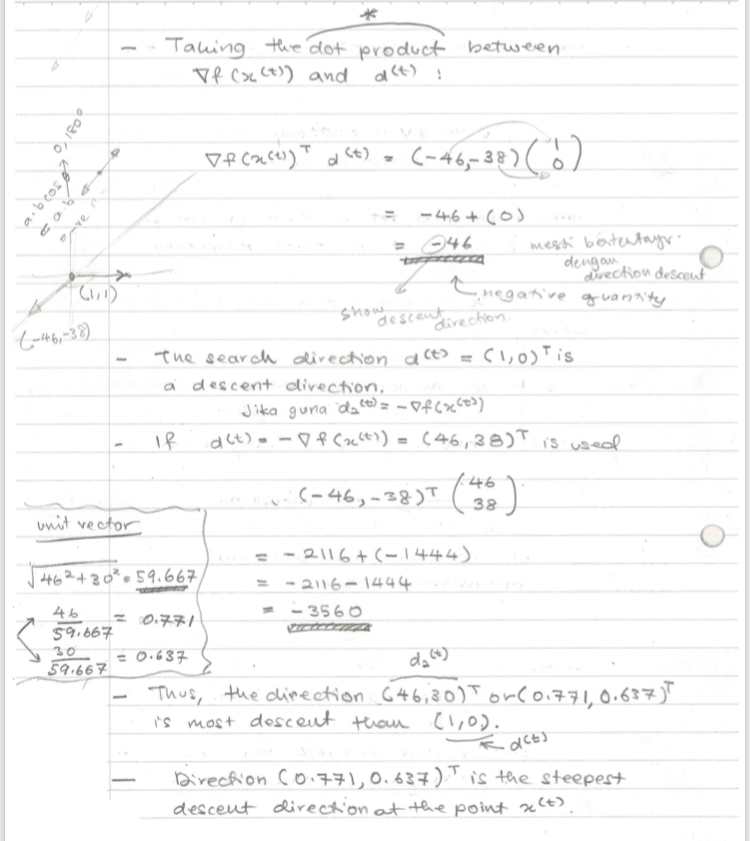 *
- Taking the dot product between
∇f(x(t)) and d(t) :
0,180°
a.b cos
a.b
∇f(x(t))ᵀ d(t) = (-46,-38) (1 0)
= -46 + (0)
= -46
dengan
direction descent
negative quantity
show descent direction.
(1,1)
(-46,-38)
- The search direction d(t) = (1,0)ᵀ is
a descent direction.
Jika guna d₂(t) = -∇f(x(t))
- If d(t) = -∇f(x(t)) = (46,38)ᵀ is used
(-46,-38)ᵀ (46 38)
= -2116 + (-1444)
= -2116 - 1444
= -3560
unit vector
√46²+30² = 59.667
46/59.667 = 0.771
30/59.667 = 0.637
d₂(t)
- Thus, the direction (46,30)ᵀ or (0.771, 0.637)ᵀ
is most descent than (1,0).
← d(t)
- Direction (0.771, 0.637)ᵀ is the steepest
descent direction at the point x(t).